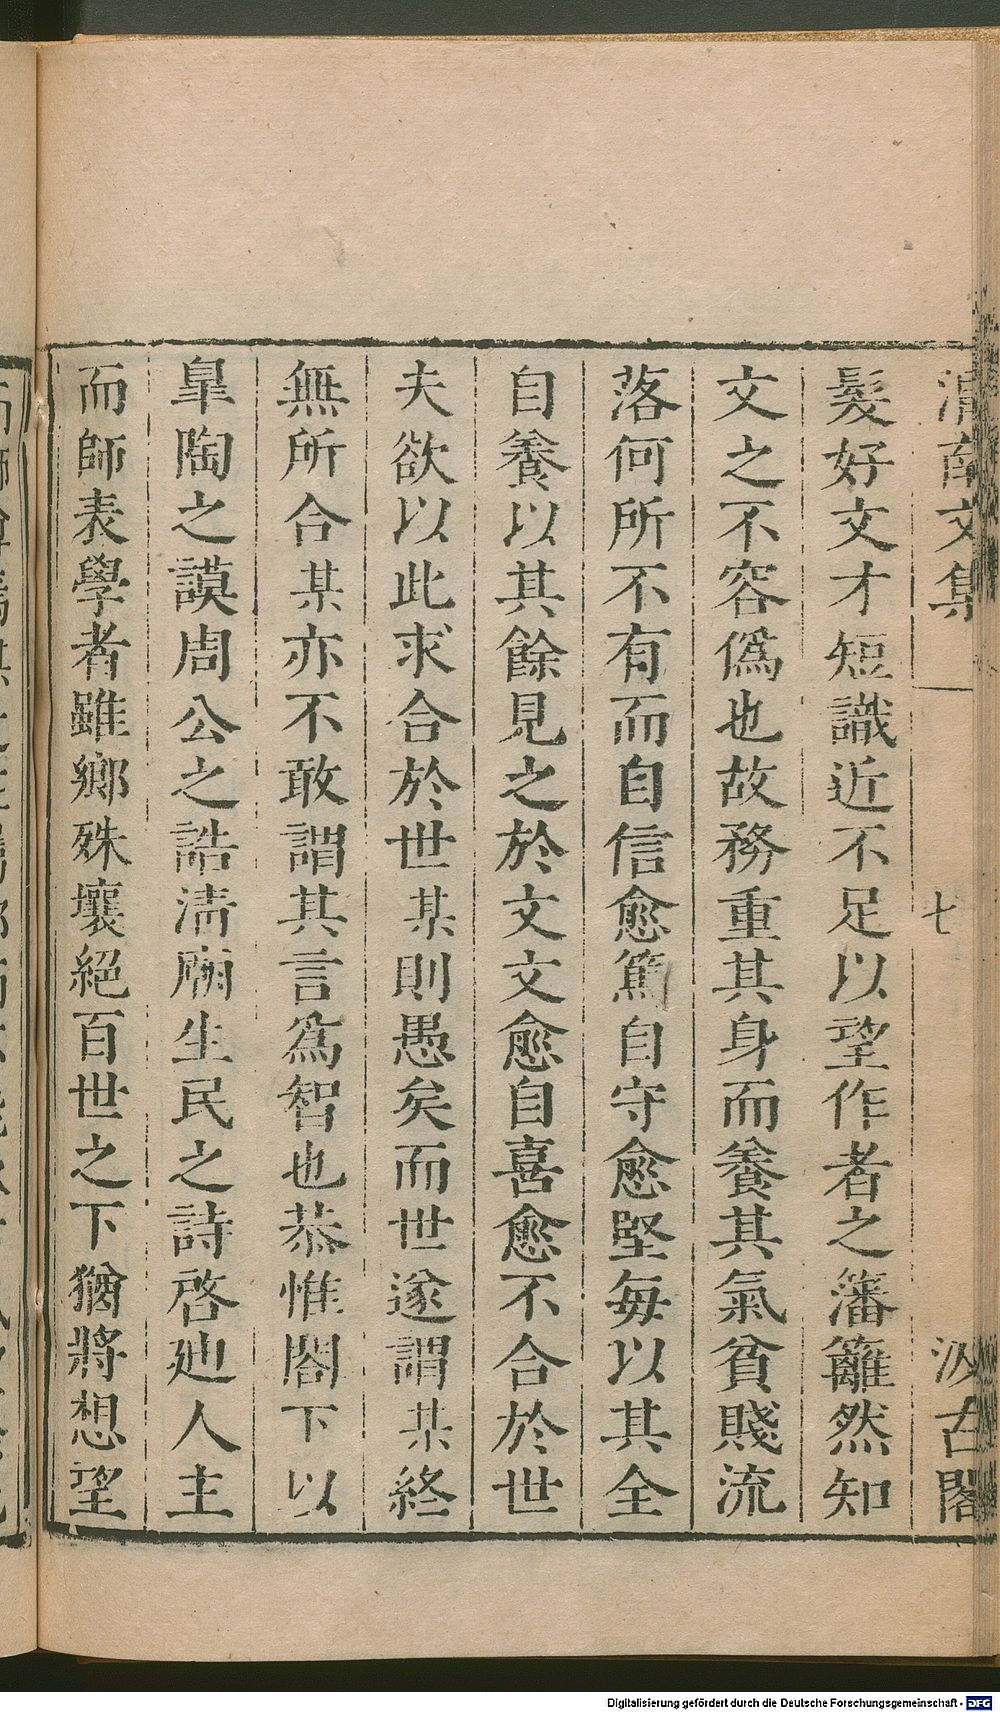 渭南文集
七
汲古閣
髮好文才短識近不足以望作者之藩籬然知
文之不容僞也故務重其身而養其氣貧賤流
落何所不有而自信愈篤自守愈堅每以其全
自養以其餘見之於文文愈自喜愈不合於世
夫欲以此求合於世某則愚矣而世遂謂某終
無所合某亦不敢謂其言爲智也恭惟閤下以
皐陶之謨周公之誥淸廟生民之詩啓廸人主
而師表學者雖鄉殊壤絕百世之下猶將想望
Digitalisierung gefördert durch die Deutsche Forschungsgemeinschaft - DFG